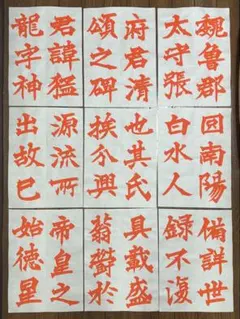 魏魯郡
太守張
府君清
頌之碑
君諱猛
龍字神
囧南陽
白水人
也其氏
族分興
源流所
出故已
備詳世
録不復
具載盛
蓊鬱於
帝皇之
始德星